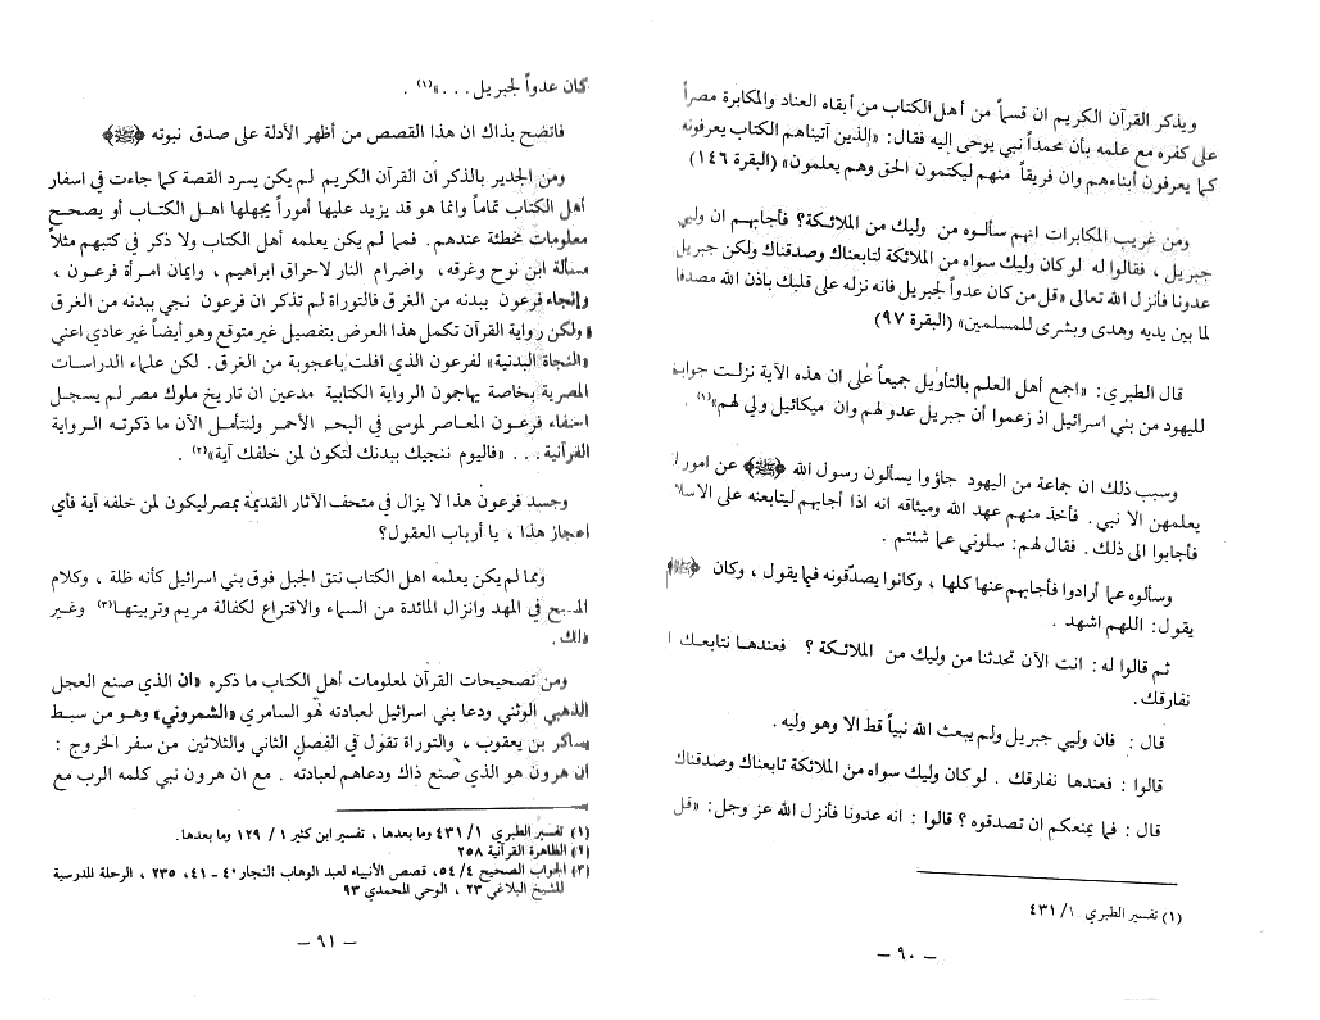 ويذكر القرآن الكريم ان قسماً من أهل الكتاب من أبقاه العناد والمكابرة مصراً
على كفره مع علمه بأن محمداً نبي يوحى إليه فقال: «الذين آتيناهم الكتاب يعرفونه
كما يعرفون أبناءهم وان فريقاً منهم ليكتمون الحق وهم يعلمون» (البقرة ١٤٦)
ومن غريب المكابرات انهم سألوه من وليك من الملائكة؟ فأجابهم ان وليي
جبريل ، فقالوا له لو كان وليك سواه من الملائكة لتابعناك وصدقناك ولكن جبريل
عدونا فأنزل الله تعالى «قل من كان عدواً لجبريل فانه نزله على قلبك باذن الله مصدقا
لما بين يديه وهدى وبشرى للمسلمين» (البقرة ٩٧)
قال الطبري: «اجمع أهل العلم بالتأويل جميعاً على ان هذه الآية نزلت جوابا
لليهود من بني اسرائيل اذ زعموا أن جبريل عدو لهم وان ميكائيل ولي لهم»(١) .
وسبب ذلك ان جماعة من اليهود جاؤوا يسألون رسول الله ﴿ﷺ﴾ عن امور لا
يعلمهن الا نبي. فأخذ منهم عهد الله وميثاقه انه اذا أجابهم ليتابعنه على الاسلا
فأجابوا الى ذلك. فقال لهم: سلوني عما شئتم .
وسألوه عما أرادوا فأجابهم عنها كلها ، وكانوا يصدّقونه فيما يقول ، وكان ﴿ﷺ﴾
يقول: اللهم اشهد .
ثم قالوا له: انت الآن تحدثنا من وليك من الملائكة ؟ فعندها نتابعك ا
نفارقك.
قال : فان وليي جبريل ولم يبعث الله نبياً قط الا وهو وليه.
قالوا : فعندها نفارقك . لو كان وليك سواه من الملائكة تابعناك وصدقناك
قال : فما يمنعكم ان تصدقوه ؟ قالوا : انه عدونا فأنزل الله عز وجل: «قل
(١) تفسير الطبري ١/ ٤٣١
– ٩٠ –
كان عدواً لجبريل . . .»(١) .
فاتضح بذاك ان هذا القصص من أظهر الأدلة على صدق نبوته ﴿ﷺ﴾
ومن الجدير بالذكر أن القرآن الكريم لم يكن يسرد القصة كما جاءت في اسفار
أهل الكتاب تماماً وانما هو قد يزيد عليها أموراً يجهلها اهل الكتاب أو يصحح
معلومات مخطئة عندهم. فمما لم يكن يعلمه أهل الكتاب ولا ذكر في كتبهم مثلاً
مسألة ابن نوح وغرقه، واضرام النار لاحراق ابراهيم ، وايمان امرأة فرعون ،
وإنجاء فرعون ببدنه من الغرق فالتوراة لم تذكر ان فرعون نجي ببدنه من الغرق
«ولكن رواية القرآن تكمل هذا العرض بتفصيل غير متوقع وهو أيضاً غير عادي اعني
«النجاة البدنية» لفرعون الذي افلت باعجوبة من الغرق. لكن علماء الدراسات
المصرية بخاصة يهاجمون الرواية الكتابية مدعين ان تاريخ ملوك مصر لم يسجل
اختفاء فرعون المعاصر لموسى في البحر الأحمر ولنتأمل الآن ما ذكرته الرواية
القرآنية. . . «فاليوم ننجيك ببدنك لتكون لمن خلفك آية»(٢) .
وجسد فرعون هذا لا يزال في متحف الآثار القديمة بمصر ليكون لمن خلفه آية فأي
اعجاز هذا ، يا أرباب العقول؟
ومما لم يكن يعلمه اهل الكتاب نتق الجبل فوق بني اسرائيل كأنه ظلة ، وكلام
المسيح في المهد وانزال المائدة من السماء والاقتراع لكفالة مريم وتربيتها(٣) وغير
ذلك.
ومن تصحيحات القرآن لمعلومات أهل الكتاب ما ذكره «ان الذي صنع العجل
الذهبي الوثني ودعا بني اسرائيل لعبادته هو السامري «الشمروني» وهو من سبط
يساكر بن يعقوب ، والتوراة تقول في الفصل الثاني والثلاثين من سفر الخروج :
ان هرون هو الذي صنع ذاك ودعاهم لعبادته . مع ان هرون نبي كلمه الرب مع
(١) تفسير الطبري ١/ ٤٣١ وما بعدها ، تفسير ابن كثير ١/ ١٢٩ وما بعدها.
(٢) الظاهرة القرآنية ٢٥٨
(٣) الجواب الصحيح ٤/ ٥٤، قصص الأنبياء لعبد الوهاب النجار ٤٠ – ٤١، ٢٣٥ ، الرحلة المدرسية
للشيخ البلاغي ٢٣ ، الوحي المحمدي ٩٣
– ٩١ –